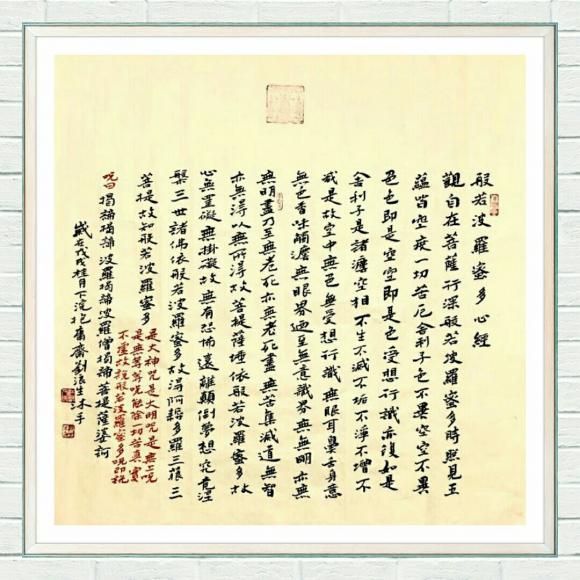 般若波羅蜜多心經
觀自在菩薩行深般若波羅蜜多時照見五
蘊皆空度一切苦厄舍利子色不異空空不異
色色即是空空即是色受想行識亦復如是
舍利子是諸灋空相不生不滅不垢不淨不增不
減是故空中無色無受想行識無眼耳鼻舌身意
無色香味觸灋無眼界迺至無意識界無無明亦無
無明盡乃至無老死亦無老死盡無苦集滅道無智
亦無得以無所得故菩提薩埵依般若波羅蜜多故
心無罣礙無掛礙故無有恐怖遠離顛倒夢想究竟涅
槃三世諸佛依般若波羅蜜多故得阿耨多羅三藐三
菩提故知般若波羅蜜多
是大神咒是大明咒是無上咒
是無等等咒能除一切苦真實
不虛故說般若波羅蜜多咒即說
咒曰揭諦揭諦波羅揭諦波羅僧揭諦菩提薩婆訶
歲在戊戌桂月下浣抱齋劉浪生沐手